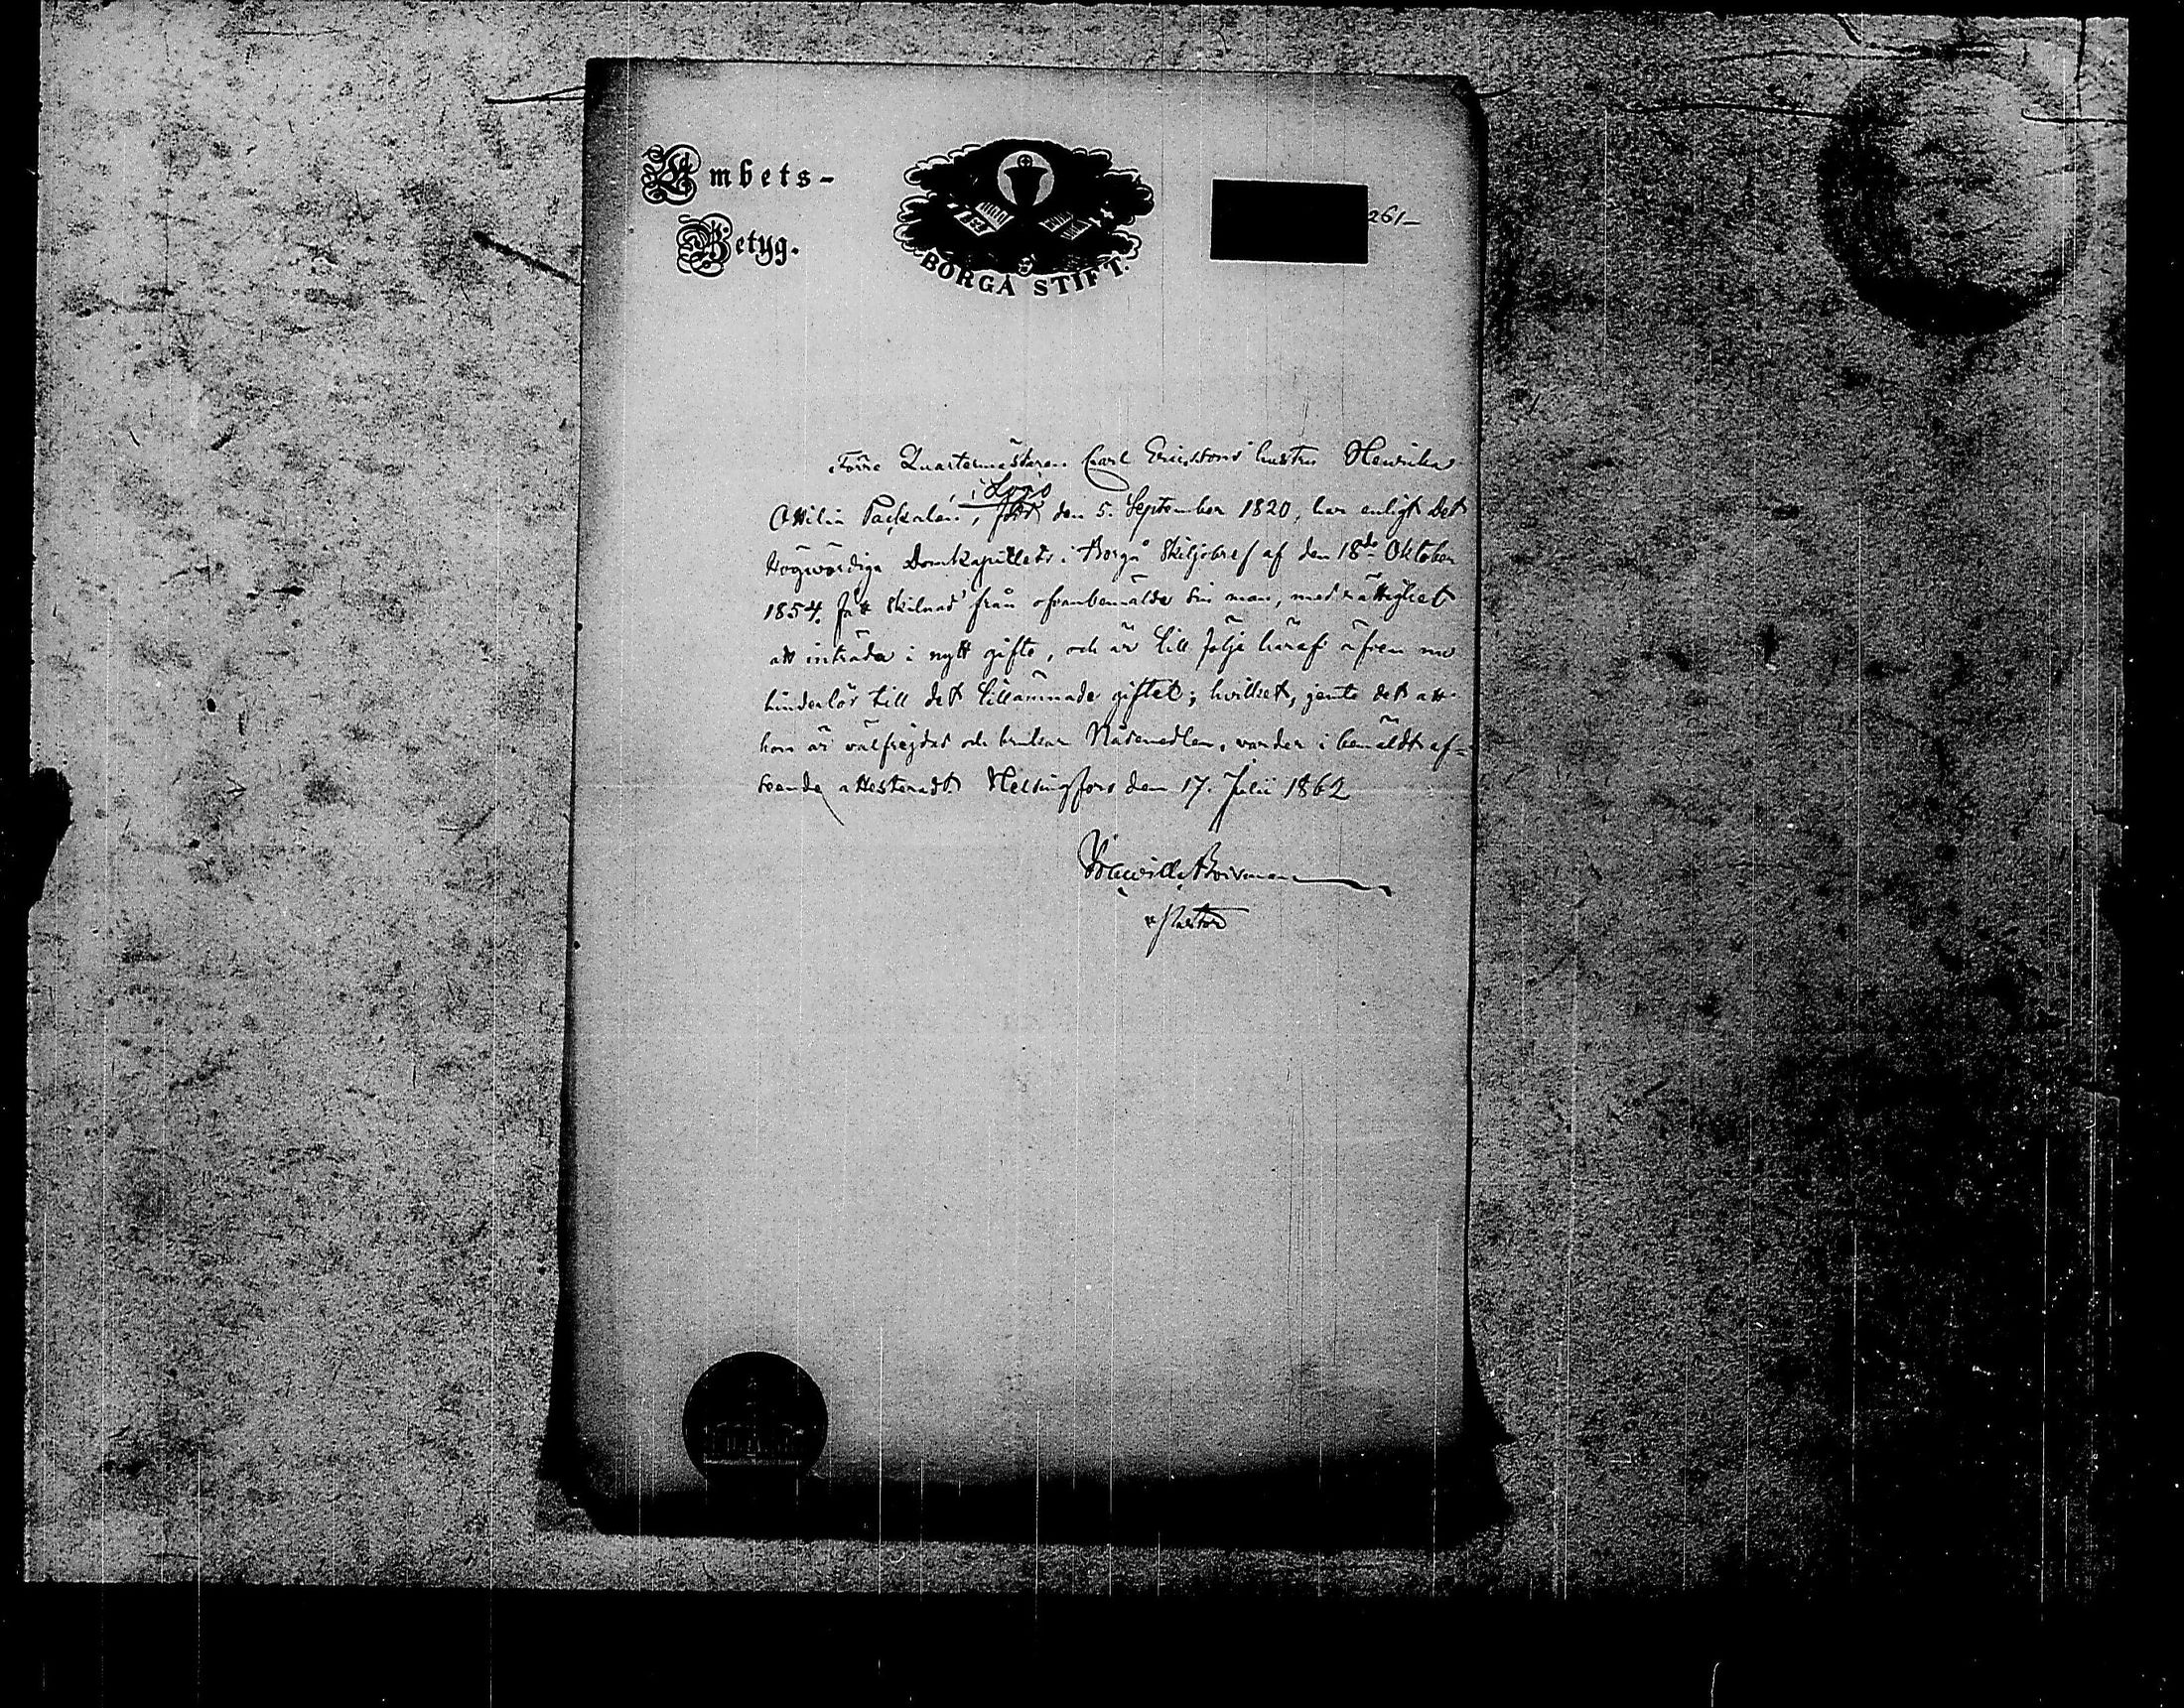 Embets-
Betyg.
BORGÅ STIFT.
261–
Förre Quartermästaren Carl Ericssons hustru Henrika
i Lojo
Ottilia Packalen, född den 5. September 1820, har enligt det
högwördiga Domkapitlets i Borgå Skiljobref af den 18de Oktober
1854. fått skilnad från ofvanbemälde sin man, med rättighet
att inträda i nytt gifte, och är till följe häraf äfven nu
hinderlös till det tillämnade giftet; hvilket, jemte det att
hon är wälfrejdad och brukar Nådemedlen, warder i bemäldt af-
seende attesteradt. Helsingfors den 17. Julii 1862
Pastor